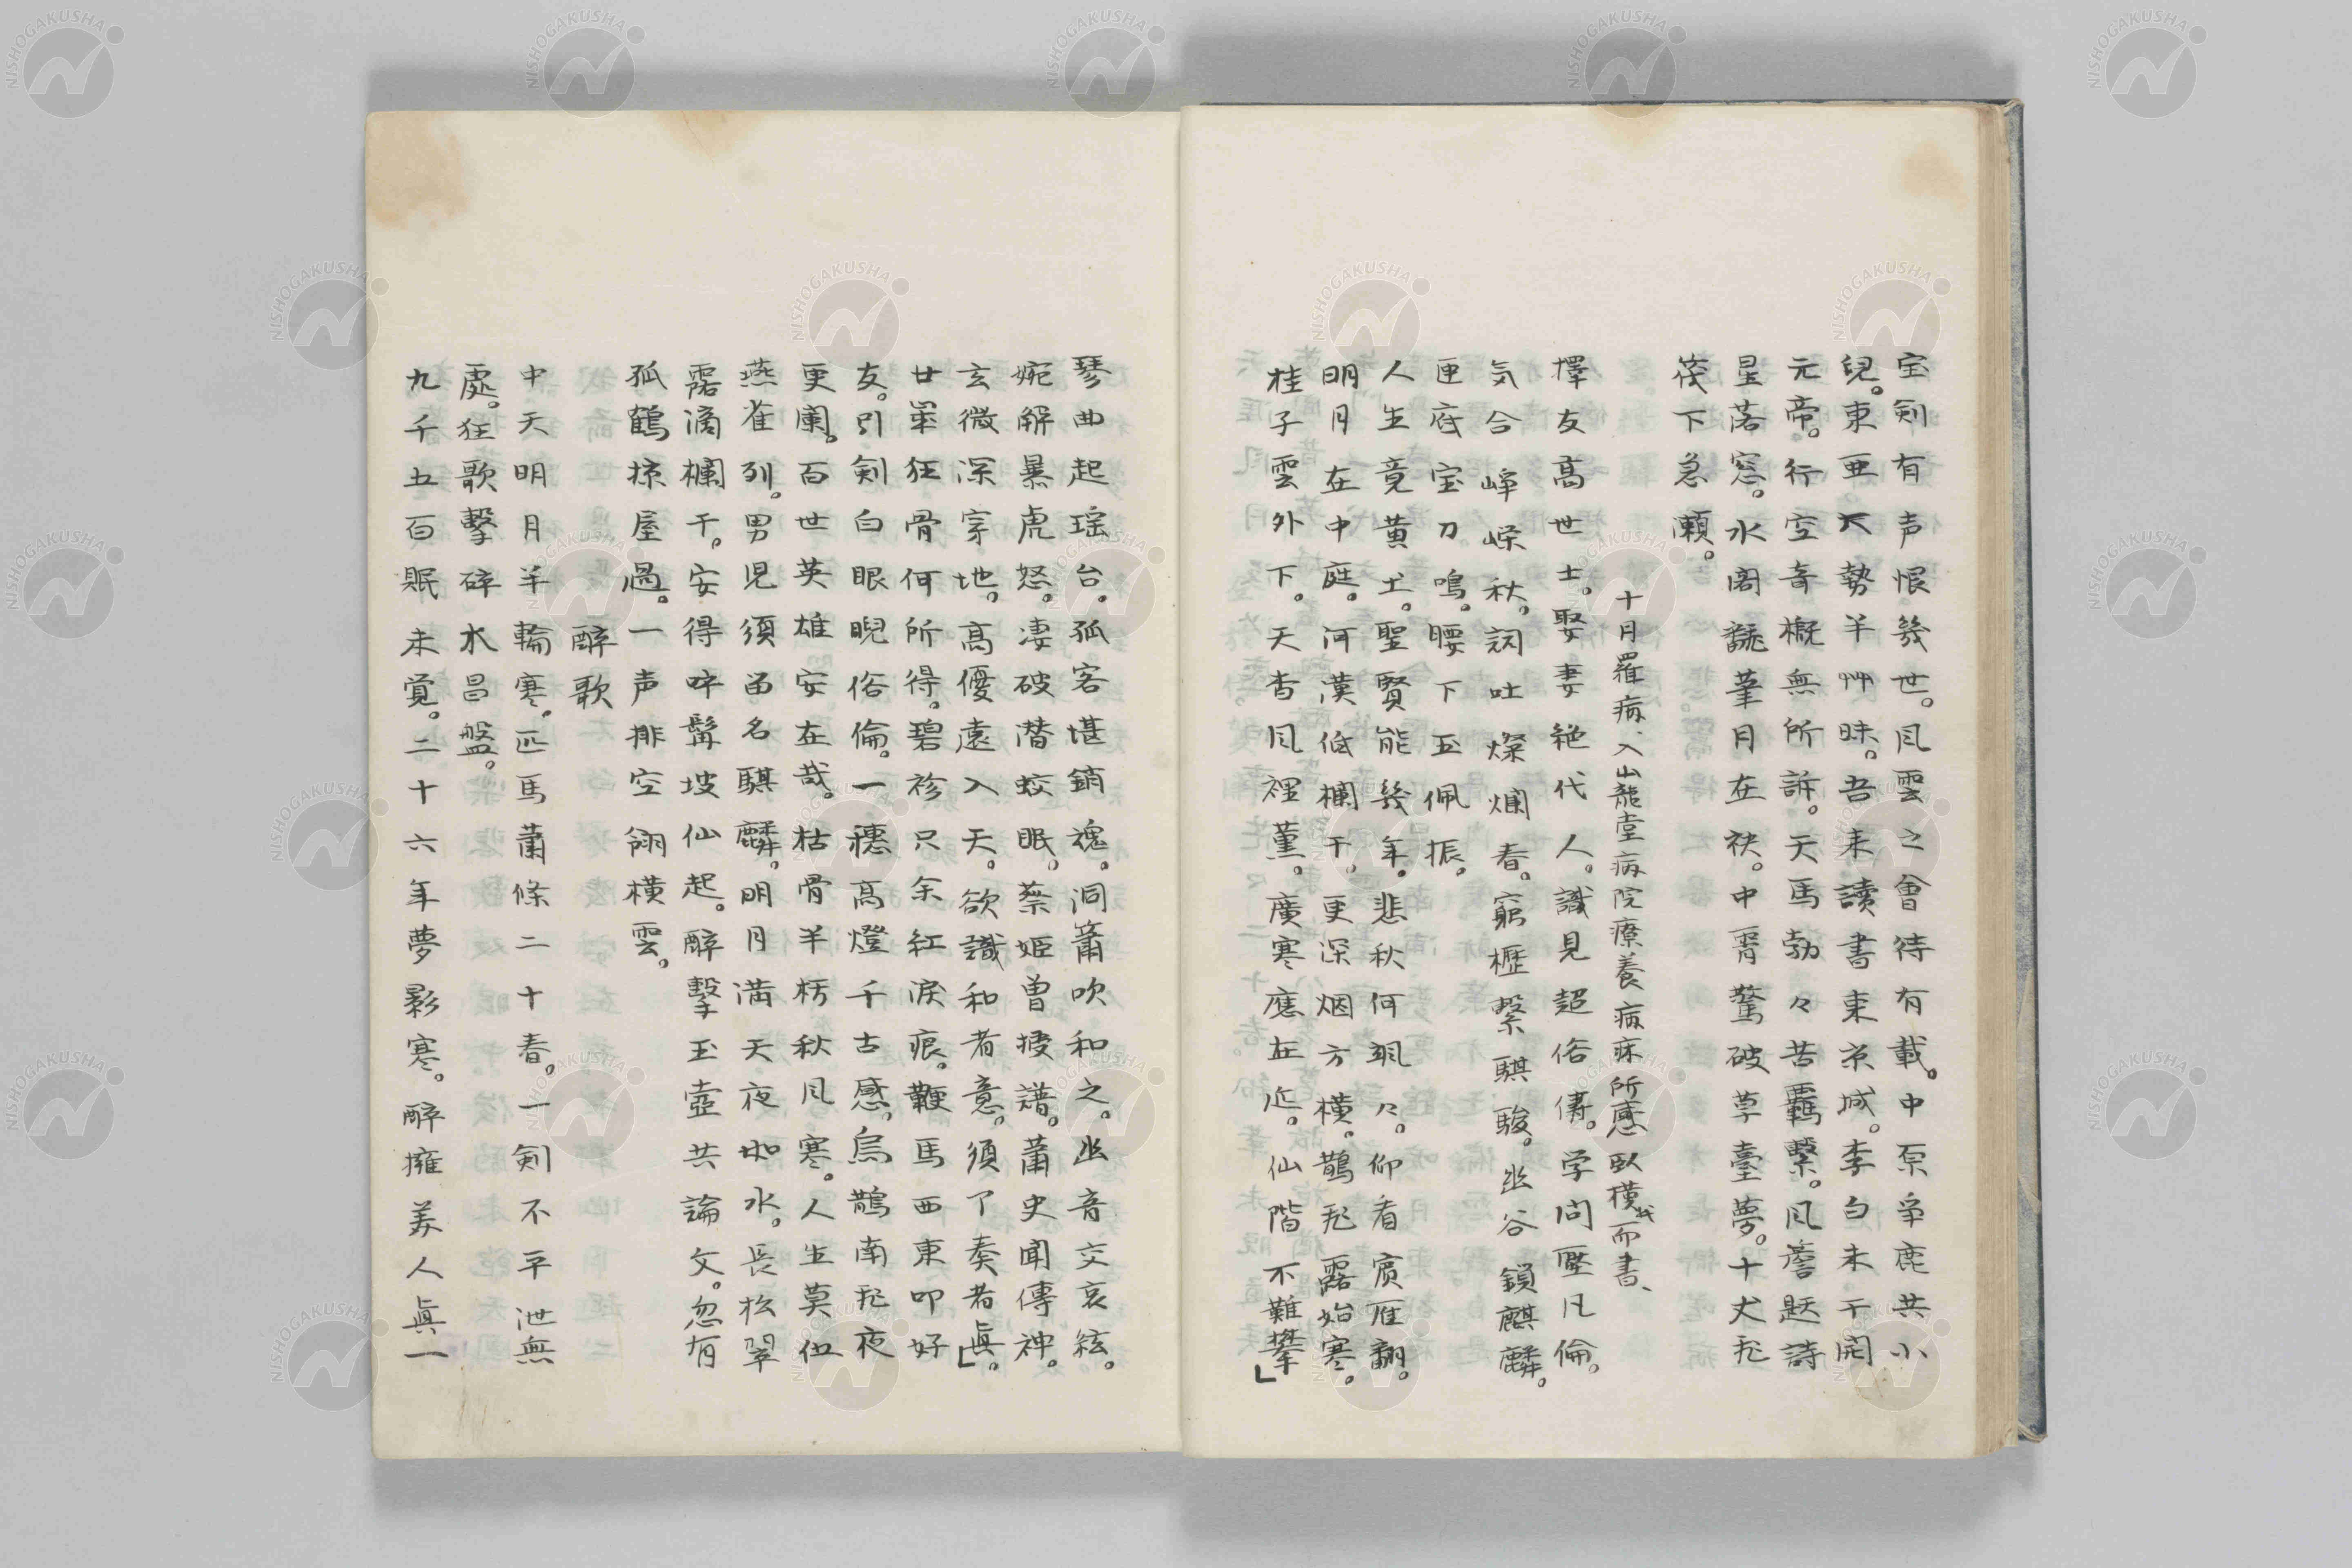 宝剣有声恨幾世。風雲之會待有載。中原爭鹿共小
兒。東亜大勢半艸昧。吾来讀書東京城。李白未干開
元帝。行空奇概無所訴。天馬勃々苦羈繫。風簷題詩
星落窓。水閣 筆月在袂。中宵驚破草臺夢。十丈飛
筏下急瀬。
十月羅病、入山龍堂病院療養病床所感臥横我而書、
擇友髙世士。娶妻絶代人。識見超俗儔。学问壓凡倫。
気合崢嶸秋。詞吐燦爛春。窮櫪繫騏駿。幽谷鎖麒麟。
匣底宝刀鳴。腰下玉佩振。
人生竟黄土。聖賢能幾年。悲秋何飒々。仰看賓雁翻。
明月在中庭。河漢低欄干。更深烟方横。鵲飛露始寒。
桂子雲外下。天杳風裡薫。廣寒應在近。仙階不難攀」
琴曲起瑶台。孤客堪銷魂。洞簫吹和之。幽音交哀絃。
婉解暴虎怒。凄破潜蛟眠。蔡姫曽擾譜。蕭史聞傳神。
玄微深穿地。髙優遠入天。欲識和者意。須了奏者眞。」
廿崋狂骨何所得。碧袗只余紅涙痕。鞭馬西東叩好
友。引剣白眼睨俗倫。一穗髙燈千古感。烏鵲南飛夜
更闌。百世英雄安在哉。枯骨半朽秋風寒。人生莫似
燕雀列。男児須留名騏麟。明月満天夜如水。長松翠
露滴欄干。安得呼髯坡仙起。醉擊玉壺共論文。忽有
孤鶴掠屋過。一声排空翩横雲。
醉歌
中天明月半輪寒。匹馬蕭條二十春。一剣不平泄無
處。狂歌擊碎水昌盤。
九千五百眠未覚。二十六年夢影寒。醉擁美人眞一